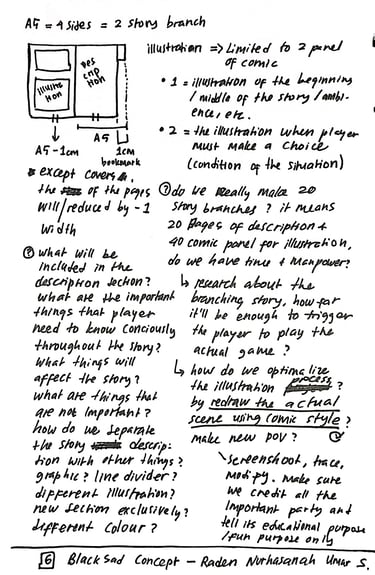 A5 = 4 sides = 2 story branch
illustration => Limited to 2 panel
of comic
• 1 = illustration of the beginning
/ middle of the story / ambi-
ence, etc.
• 2 = the illustration when player
must make a choice
(condition of the situation)
illustra
tion
des
crip
tion
A5 - 1cm
A5
1cm
bookmark
* except covers.
the of the pages
will / reduced by -1
width
? what will be
included in the
description section?
what are the important
things that player
need to know conciously
throughout the story?
what things will
affect the story?
what are things that
are not important?
how do we separate
the story descrip-
tion with other things?
graphic? line divider?
different illustration?
new section exclusively?
different colour?
? do we really make 20
story branches? it means
20 pages of description +
40 comic panel for illustration,
do we have time & manpower?
↳ research about the
branching story, how far
it'll be enough to trigger
the player to play the
actual game?
↳ how do we optimalize
the illustration process?
by redraw the actual
scene using comic style?
make new pov?
screenshoot, trace,
modify. make sure
we credit all the
important party and
tell its educational purpose
/fun purpose only
6 BlackSad Concept - Raden Nurhasanah Umar S.